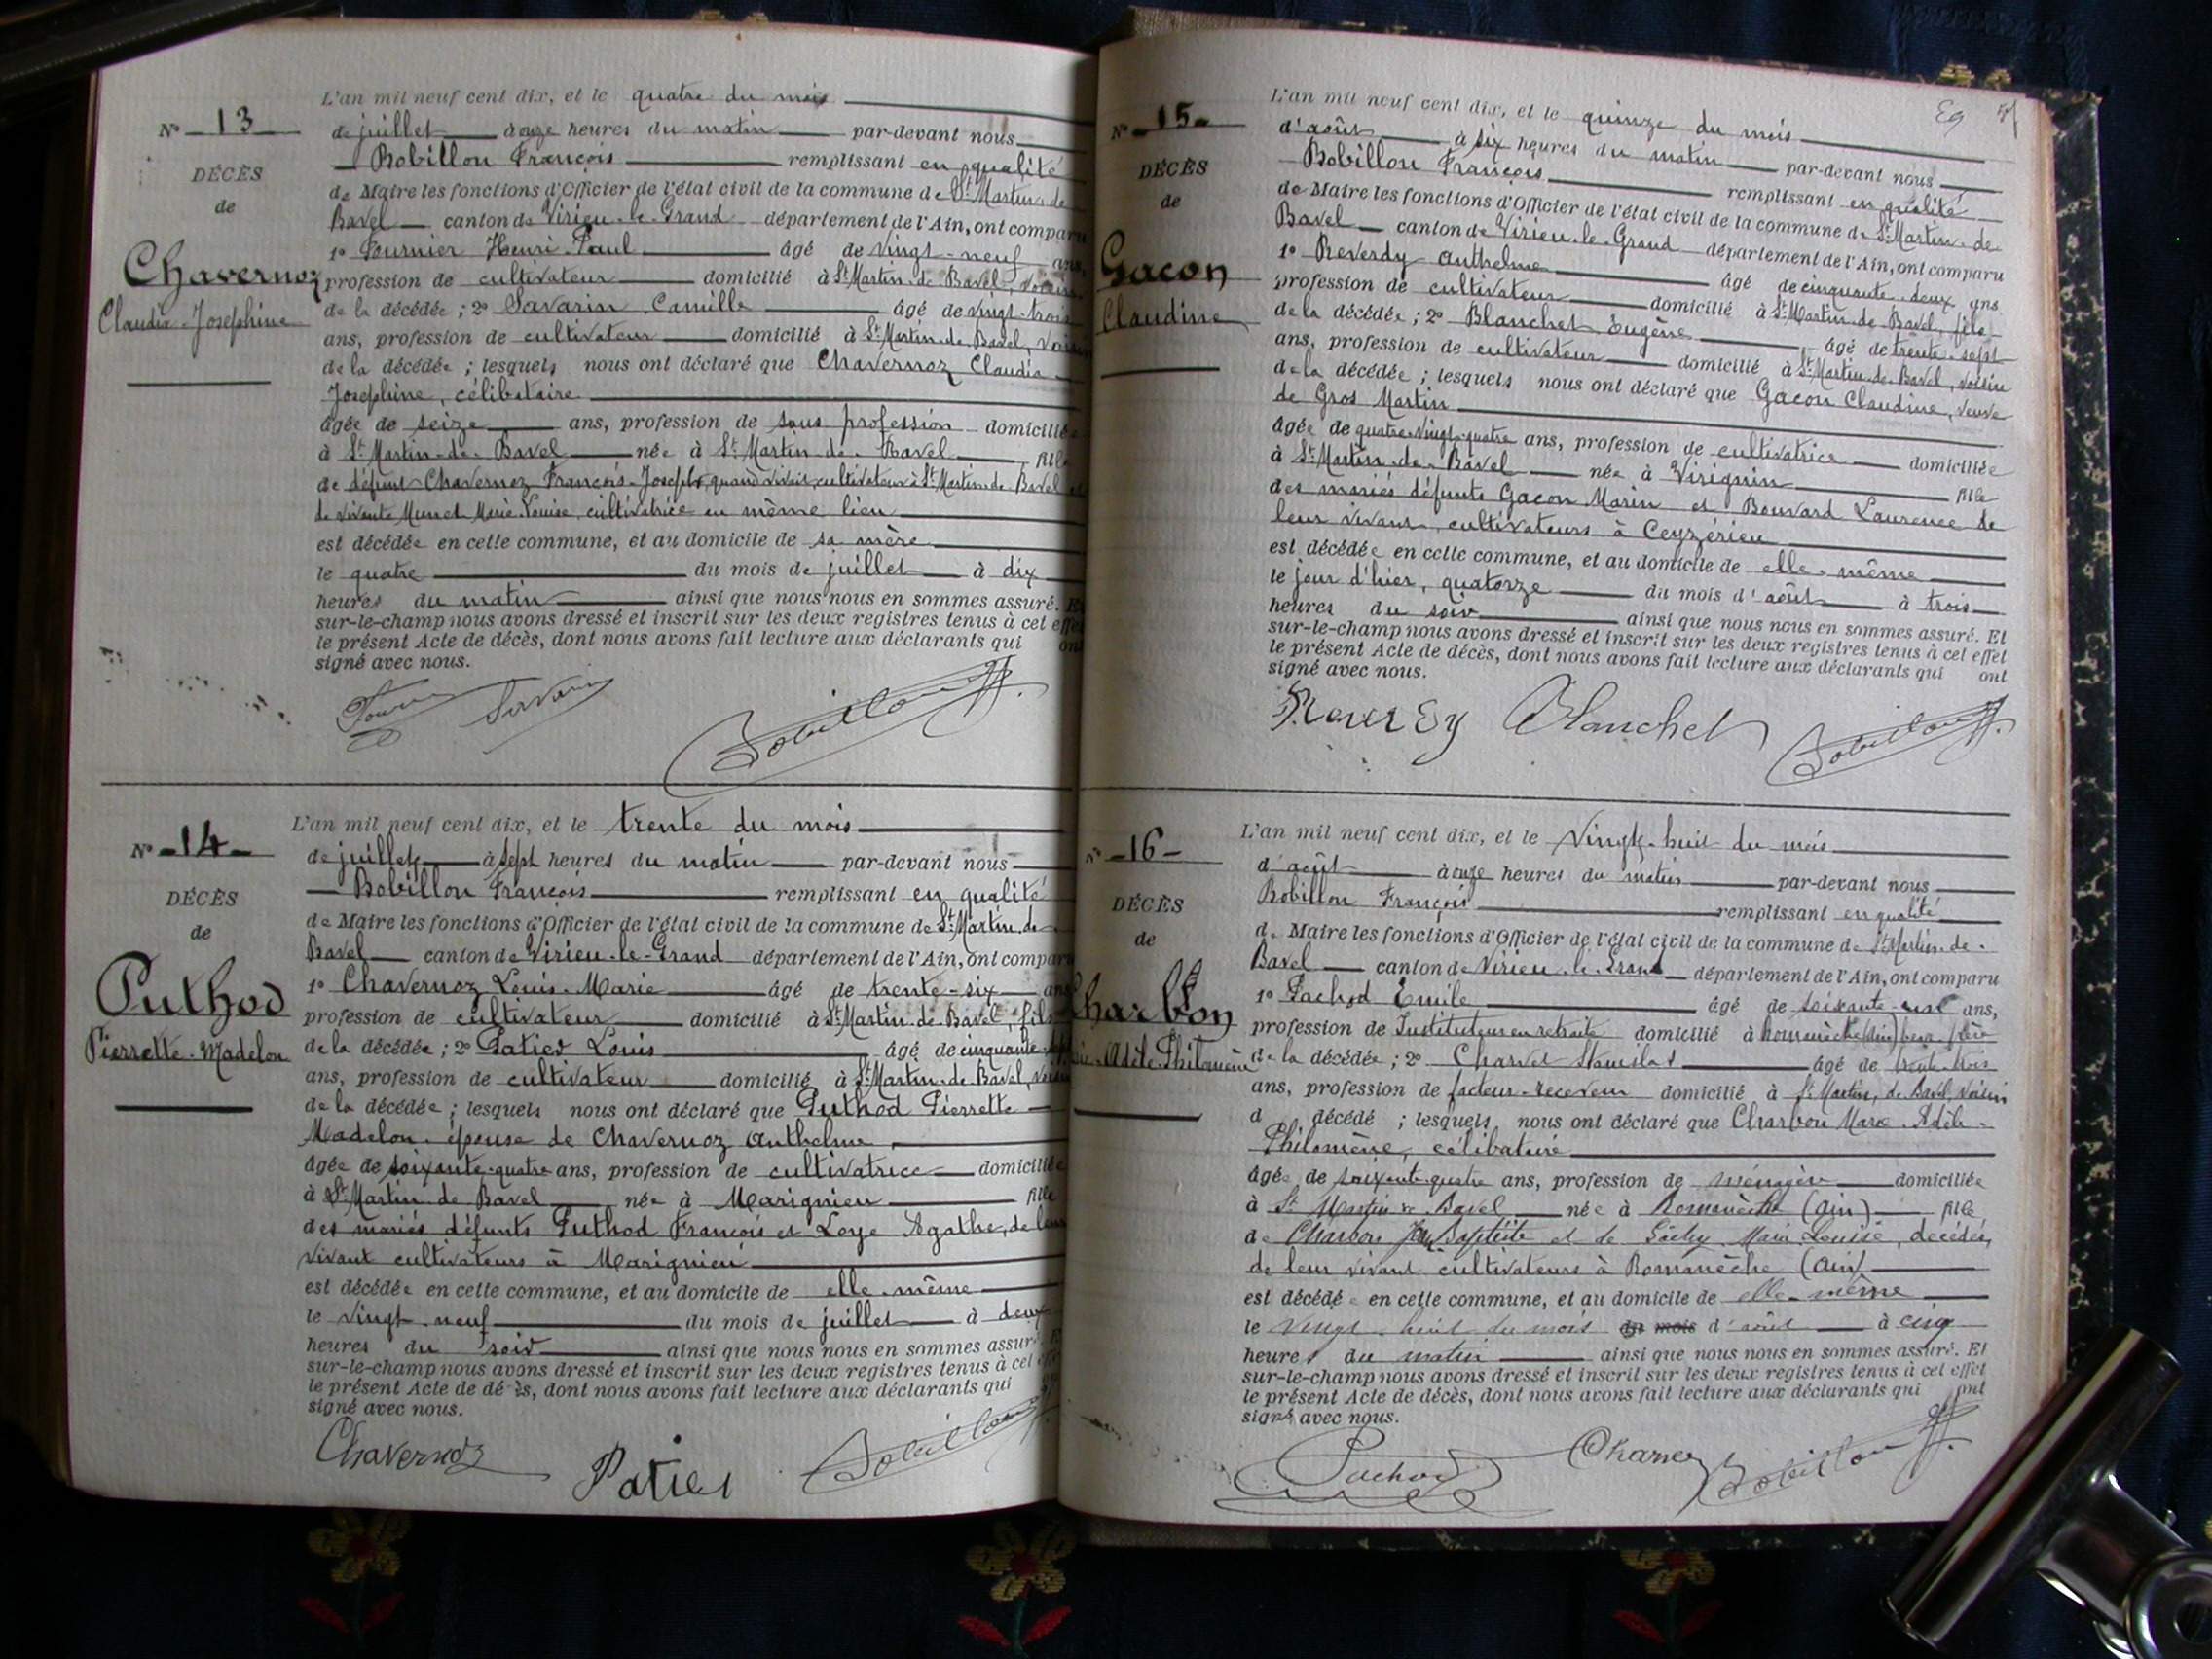 N° 13
DÉCÈS
de
Chavernoz
Claudia-Josephine
L'an mil neuf cent dix, et le quatre du mois
de juillet à onze heures du matin par-devant nous
Bobillon François remplissant en qualité
de Maire les fonctions d'Officier de l'état civil de la commune de St Martin-de
Bavel canton de Virieu-le-Grand département de l'Ain, ont comparu
1° Fournier Henri-Paul âgé de vingt-neuf ans,
profession de cultivateur domicilié à St Martin-de-Bavel, voisin
de la décédée ; 2° Savarin Camille âgé de vingt-trois
ans, profession de cultivateur domicilié à St Martin-de-Bavel, voisin
de la décédée ; lesquels nous ont déclaré que Chavernoz Claudia
Josephine, célibataire
âgée de seize ans, profession de sans profession domiciliée
à St Martin-de-Bavel née à St Martin-de-Bavel fille
de défunt Chavernoz François-Joseph, quand vivait, cultivateur à St Martin-de-Bavel et
de vivante Munet Marie-Louise, cultivatrice au même lieu
est décédée en cette commune, et au domicile de sa mère
le quatre du mois de juillet à dix
heures du matin ainsi que nous nous en sommes assuré. Et
sur-le-champ nous avons dressé et inscrit sur les deux registres tenus à cet effet
le présent Acte de décès, dont nous avons fait lecture aux déclarants qui ont
signé avec nous.
Savarin Bobillon
N° 14
DÉCÈS
de
Puthod
Pierrette-Madelon
L'an mil neuf cent dix, et le trente du mois
de juillet à sept heures du matin par-devant nous
Bobillon François remplissant en qualité
de Maire les fonctions d'Officier de l'état civil de la commune de St Martin-de
Bavel canton de Virieu-le-Grand département de l'Ain, ont comparu
1° Chavernoz Louis-Marie âgé de trente-six ans
profession de cultivateur domicilié à St Martin-de-Bavel, fils
de la décédée ; 2° Patier Louis âgé de cinquante
ans, profession de cultivateur domicilié à St Martin-de-Bavel, voisin
de la décédée ; lesquels nous ont déclaré que Puthod Pierrette
Madelon épouse de Chavernoz Anthelme
âgée de soixante-quatre ans, profession de cultivatrice domiciliée
à St Martin de Bavel née à Marignieu fille
des mariés défunts Puthod François et Loye Agathe, de leur
vivant cultivateurs à Marignieu
est décédée en cette commune, et au domicile de elle-même
le vingt-neuf du mois de juillet à deux
heures du soir ainsi que nous nous en sommes assuré.
sur-le-champ nous avons dressé et inscrit sur les deux registres tenus à cet
le présent Acte de dé ès, dont nous avons fait lecture aux déclarants qui
signé avec nous.
Chavernoz Patier Bobillon
N° 15
DÉCÈS
de
Gacon
Claudine
L'an mil neuf cent dix, et le quinze du mois
d'août à six heures du matin par-devant nous
Bobillon François remplissant en qualité
de Maire les fonctions d'Officier de l'état civil de la commune de St Martin-de
Bavel canton de Virieu-le-Grand département de l'Ain, ont comparu
1° Reverdy Anthelme âgé de cinquante-deux ans
profession de cultivateur domicilié à St Martin-de-Bavel, fils
de la décédée ; 2° Blanchet Eugène âgé de trente-sept
ans, profession de cultivateur domicilié à St Martin-de-Bavel, voisin
de la décédée ; lesquels nous ont déclaré que Gacon Claudine, veuve
de Gros Martin
âgée de quatre-vingt-quatre ans, profession de cultivatrice domiciliée
à St Martin-de-Bavel née à Virignin fille
des mariés défunts Gacon Marin et Bouvard Laurence de
leur vivant cultivateurs à Ceyzérieu
est décédée en cette commune, et au domicile de elle-même
le jour d'hier, quatorze du mois d'août à trois
heures du soir ainsi que nous nous en sommes assuré. Et
sur-le-champ nous avons dressé et inscrit sur les deux registres tenus à cet effet
le présent Acte de décès, dont nous avons fait lecture aux déclarants qui ont
signé avec nous.
Reverdy Blanchet Bobillon
N° 16
DÉCÈS
de
Charbon
Adèle-Philomène
L'an mil neuf cent dix, et le vingt-huit du mois
d'août à onze heures du matin par-devant nous
Bobillon François remplissant en qualité
de Maire les fonctions d'Officier de l'état civil de la commune de St Martin-de
Bavel canton de Virieu-le-Grand département de l'Ain, ont comparu
1° Pachod Emile âgé de soixante ans,
profession de Instituteur en retraite domicilié à Romanèche (Ain)
de la décédée ; 2° Charvet Stanislas âgé de trente-trois
ans, profession de facteur-receveur domicilié à St Martin-de-Bavel, voisin
d décédé ; lesquels nous ont déclaré que Charbon Marie-Adèle-
Philomène, célibataire
âgée de soixante-quatre ans, profession de ménagère domiciliée
à St Martin de Bavel née à Romanèche (Ain) fille
de Charbon Jean Baptiste et de Marie Louise, décédés,
de leur vivant cultivateurs à Romanèche (Ain)
est décédée en cette commune, et au domicile de elle-même
le vingt-huit du mois du mois d'août à cinq
heures du matin ainsi que nous nous en sommes assuré. Et
sur-le-champ nous avons dressé et inscrit sur les deux registres tenus à cet effet
le présent Acte de décès, dont nous avons fait lecture aux déclarants qui ont
signé avec nous.
Pachod Charvet Bobillon